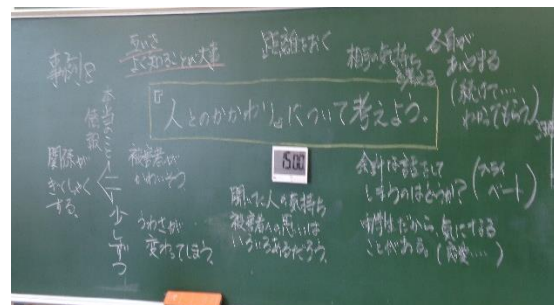 事例8
互いを
よく知ることが大事
距離をおく
相手の気持ち
を考える
各自が
あいさつする
(続けて…
わかってもらう)
『人とのかかわり』について考えよう。
本当のこと
情報
少しずつ
関係が
ぎくしゃく
する。
被害者が
かわいそう
うわさが
変わってしまう。
15:00
聞いた人の気持ち
被害者人の思いは
いろいろあるだろう。
会計は
しまうのはどうか?
(プライ
ベート)
だから、気にする
ことがある。